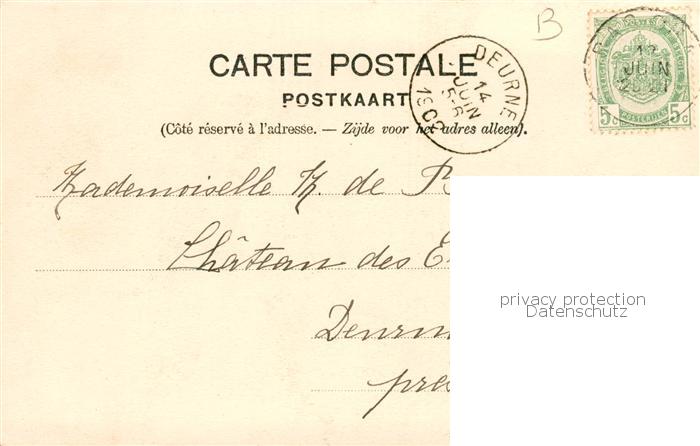 B
CARTE POSTALE
POSTKAART
(Côté réservé à l'adresse. — Zijde voor het adres alleen).
DEURNE
14
JUIN
5-6
12
JUIN
5c POSTERIJEN 5c
Mademoiselle M. de
Château des
privacy protection
Datenschutz